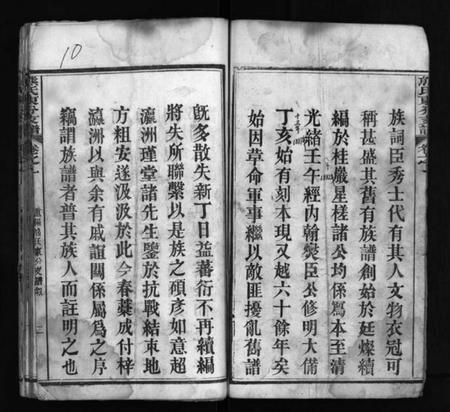 族詞臣秀士代有其人文物衣冠可
稱甚盛其舊有族譜創始於廷燦續
編於桂巖星槎諸公均係寫本至清
光緒壬午經內翰爕臣公修明大備
丁亥始有刻本現又越六十餘年矣
始因章命軍事繼以敵匪擾亂舊譜
既多散失新丁日益蕃衍不再續編
將失所聯繫以是族之碩彥如意超
瀛洲瑾堂諸先生鑒於抗戰結束地
方粗安遂汲汲於此今春藁成付梓
瀛洲以與余有戚誼關係屬為之序
竊謂族譜者普其族人而註明之也
10